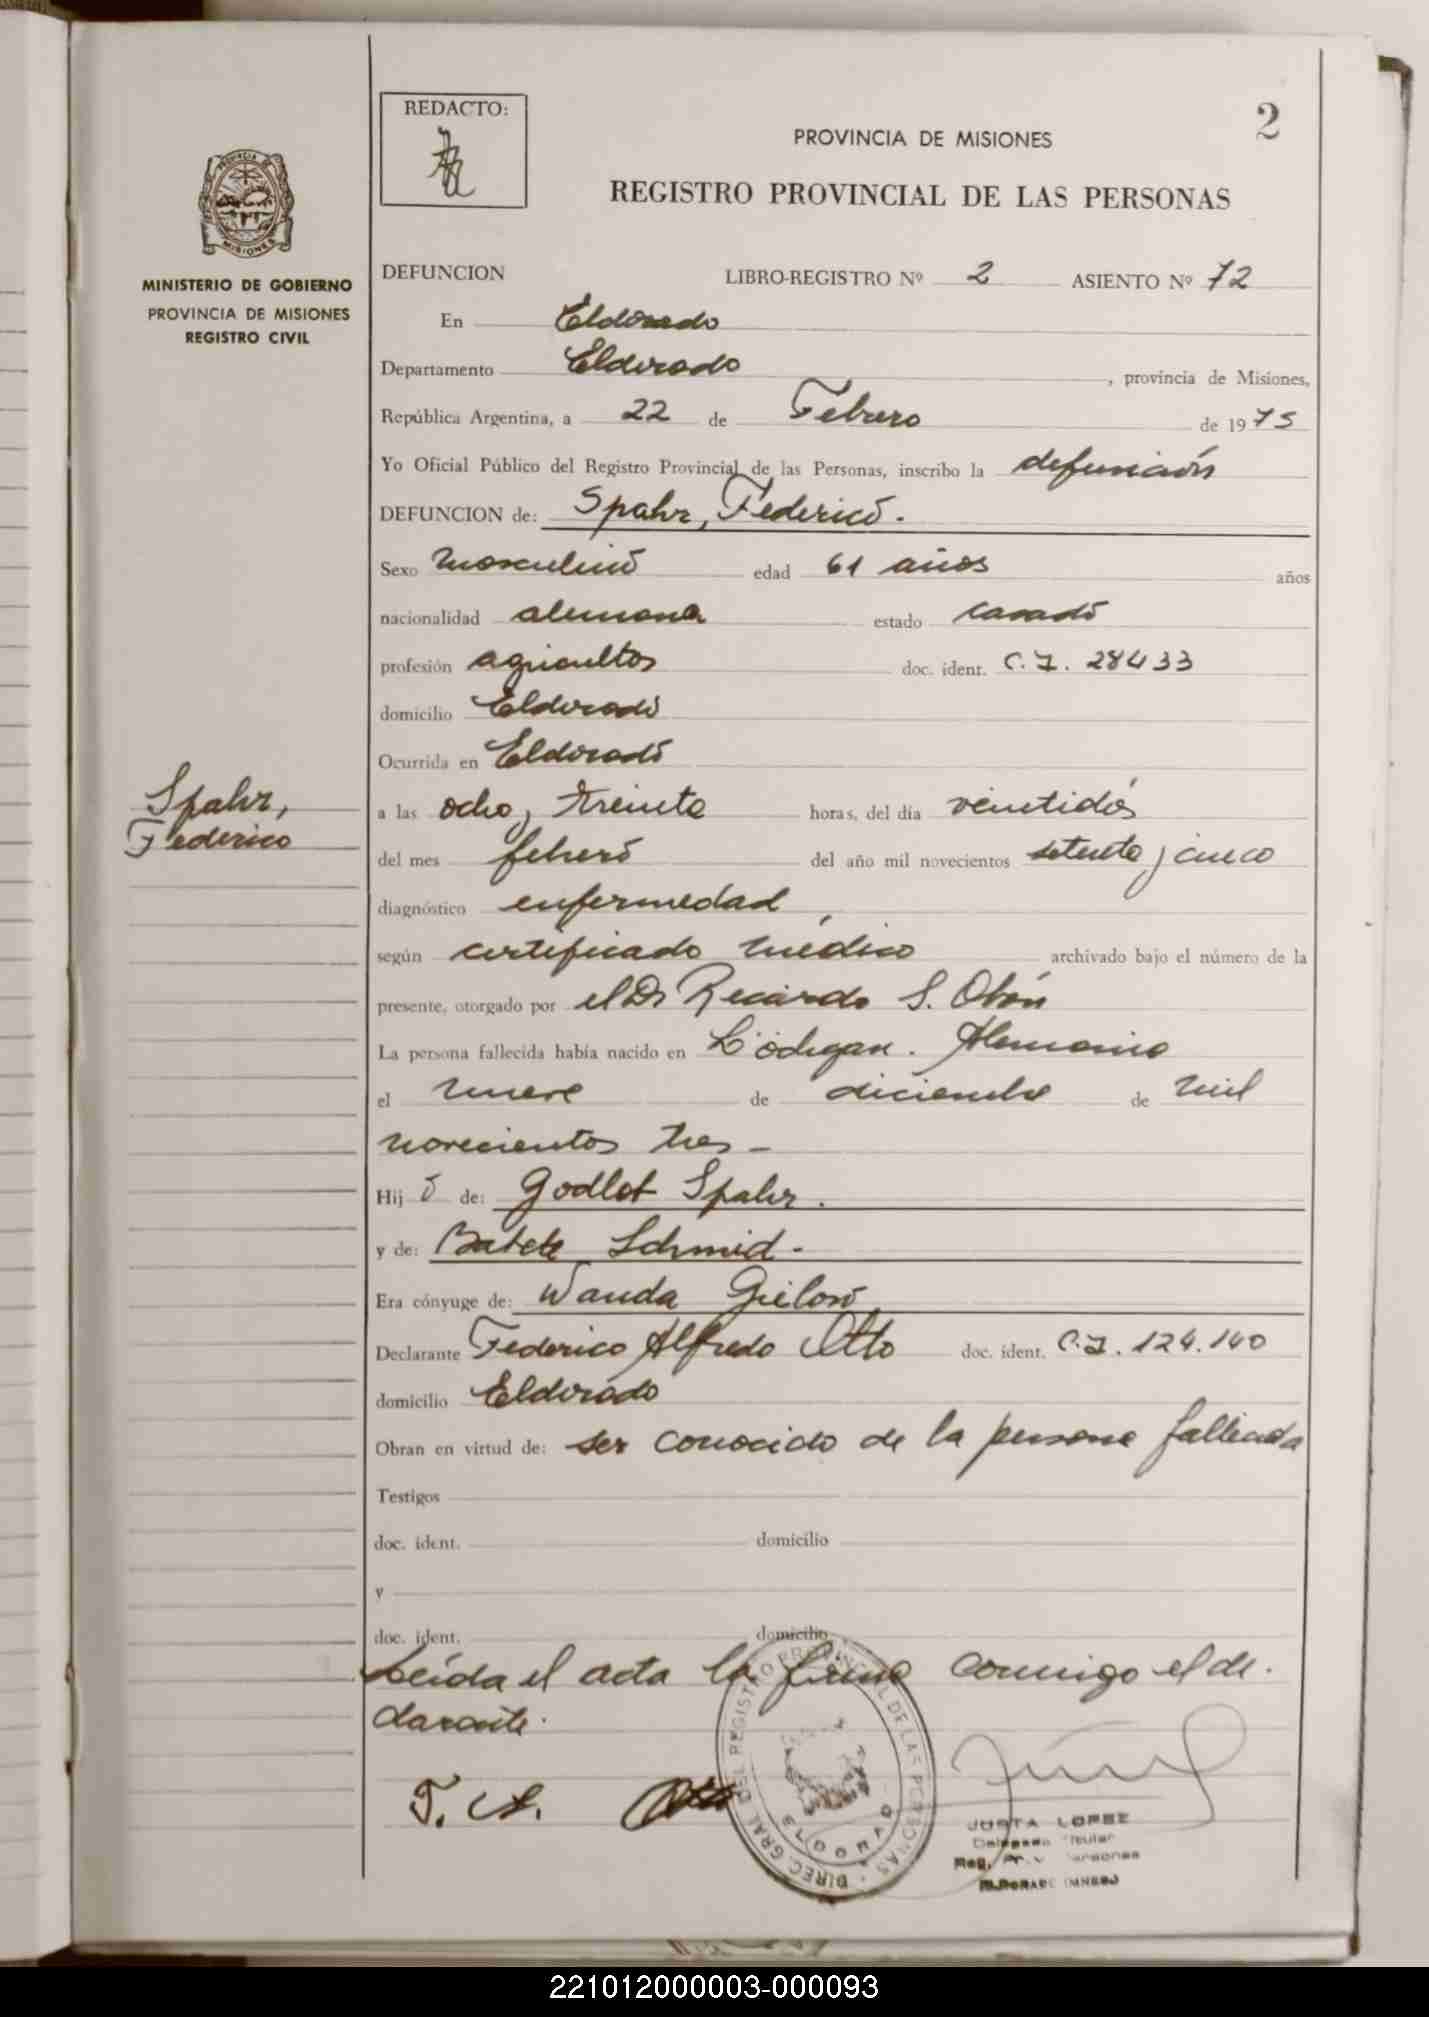 REDACTO:
2
PROVINCIA DE MISIONES
REGISTRO PROVINCIAL DE LAS PERSONAS
PROVINCIA DE MISIONES
MINISTERIO DE GOBIERNO
PROVINCIA DE MISIONES
REGISTRO CIVIL
DEFUNCION LIBRO-REGISTRO Nº 2 ASIENTO Nº 72
En Eldorado
Departamento Eldorado , provincia de Misiones,
República Argentina, a 22 de Febrero de 1975
Yo Oficial Público del Registro Provincial de las Personas, inscribo la defunción
DEFUNCION de: Spahr, Federico.
Sexo Masculino edad 61 años años
nacionalidad alemana estado casado
profesión agricultor doc. ident. C.I. 28433
domicilio Eldorado
Ocurrida en Eldorado
Spahr,
Federico
a las ocho y treinta horas, del día veintidós
del mes febrero del año mil novecientos setenta y cinco
diagnóstico enfermedad
según certificado médico archivado bajo el número de la
presente, otorgado por el Dr Ricardo S. Obón
La persona fallecida había nacido en Alemania
el nueve de diciembre de mil
novecientos tres -
Hij o de: Godlot Spahr.
y de: Babete Schmid -
Era cónyuge de: Wanda
Declarante Federico Alfredo Otto doc. ident. C.I. 124.140
domicilio Eldorado
Obran en virtud de: ser conocido de la persona fallecida
Testigos
doc. ident. domicilio
y
doc. ident. domicilio
Leída el acta la firma conmigo el de-
clarante.
F. A. Otto
DIREC. GRAL DEL REGISTRO PROVINCIAL DE LAS PERSONAS
ELDORADO
JUSTA LOPEZ
Delegada Titular
Reg. Prov. Personas
ELDORADO (MNES)
221012000003-000093